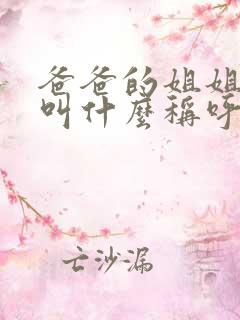 爸爸的姐姐
叫什麼稱呼
亡沙漏